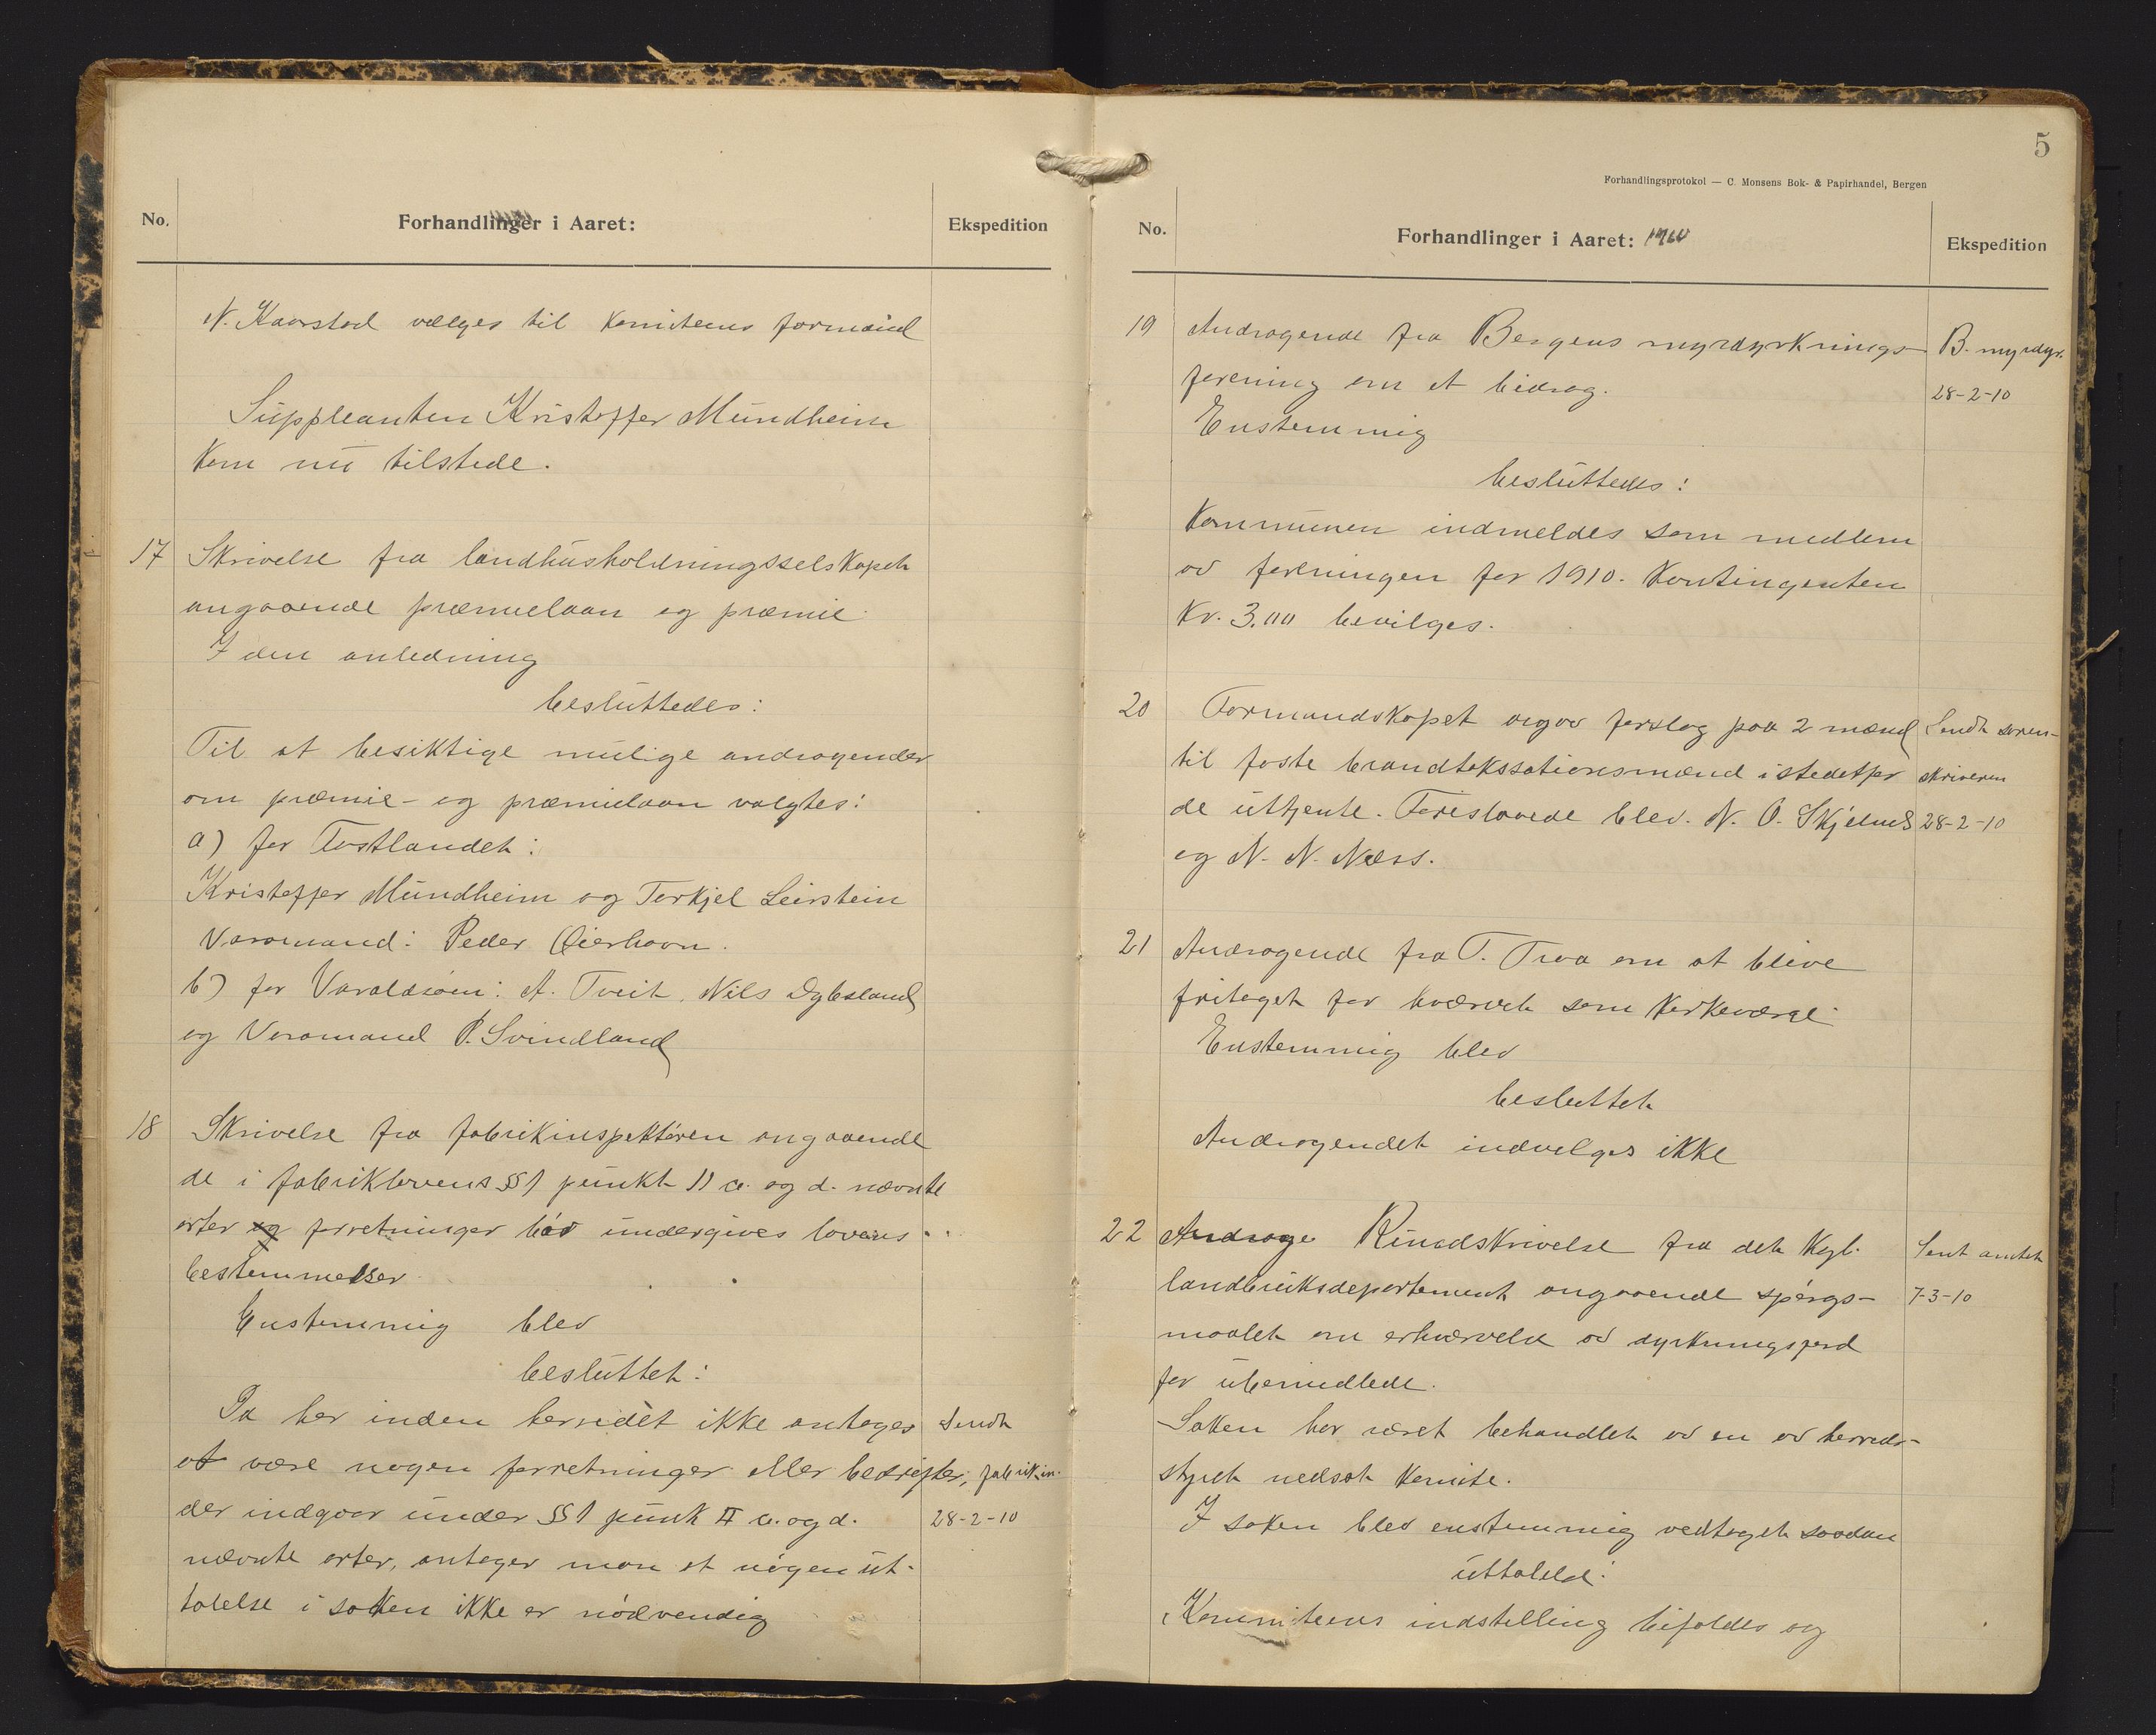 No.
Forhandlinger i Aaret:
Ekspedition
N. Kaarstad vælges til komiteens formand
Suppleanten Kristoffer Mundheim
kom nu tilstede.
17 Skrivelse fra landhusholdningsselskapet
angaaende præmielaan og præmie.
I den anledning
besluttedes:
Til at besiktige mulige andragender
om præmie- og præmielaan valgtes:
a) for Fastlandet:
Kristoffer Mundheim og Torkjel Leirstein
Varamand: Peder Øierhavn.
b) for Varaldsøen: A. Tveit, Nils Dybsland
og Varamand P. Svindland
18 Skrivelse fra fabrikinspektøren angaaende
de i fabriklovens §§ 1 punkt II c. og d. nævnte
arter og forretninger bør undergives lovens
bestemmelser.
Enstemmig blev
besluttet:
Da her inden herredet ikke antages Sendt
at være nogen forretninger eller bedrifter, fabrikin.
der indgaar under §§ 1 punk II c. og d. 28-2-10
nævnte arter, antager man at nogen ut-
talelse i saken ikke er nødvendig
5
Forhandlingsprotokol — C. Monsens Bok- & Papirhandel, Bergen
No.
Forhandlinger i Aaret: 1910
Ekspedition
19 Andragende fra Bergens myrdyrknings- B. myrdyr.
forening om et bidrag. 28-2-10
Enstemmig
besluttedes:
Kommunen indmeldes som medlem
av foreningen for 1910. Kontingenten
Kr. 3.00 bevilges.
20 Formandskapet avgav forslag paa 2 mænd Sendt soren-
til faste brandtakssationsmænd istedetfor skriveren
de uttjente. Foreslaaede blev. N. O. Skjelnes 28-2-10
og N. N. Næss.
21 Andragende fra T. Tvea om at blive
fritaget for hvervet som kirkeværge.
Enstemmig blev
besluttet
Andragendet indvelges ikke
22 Androge Rundskrivelse fra det Kgl. Sent amtet
landbruksdepartement angaaende spørgs- 7-3-10
maalet om erhvervelse av dyrkningsjord
for ubemidlede.
Saken har været behandlet av en av herreds-
styret nedsat komite.
I saken blev enstemmig vedtaget saadan
uttalelse:
Kommiteens indstilling bifaldes og